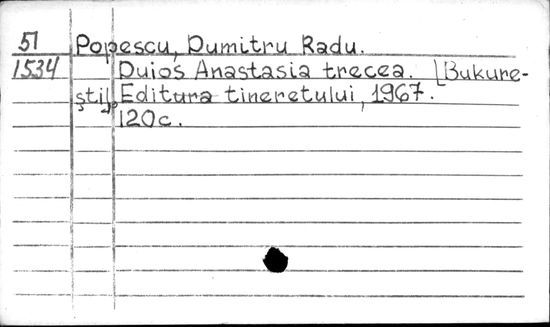 51 Popescu, Dumitru Radu.
1534 Duios Anastasia trecea. [Bukure-
şti], Editura tineretului, 1967.
120c.